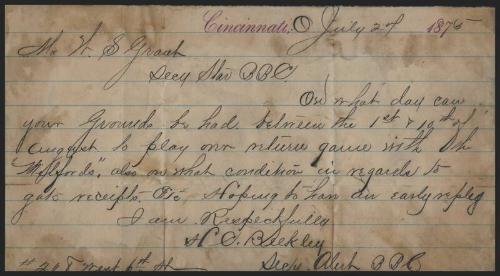 Cincinnati, O July 27 1875
Mr W. S Grant
Secy Star B.B.C.
On what day can
your Grounds be had between the 1st & 10th of
August to play our return game with the
"Milfords", also on what condition in regards to
gate receipts. Etc Hoping to han an early reply
I am Respectfully
H. C. Blekley
West 6th St Secy Alert B.B.C